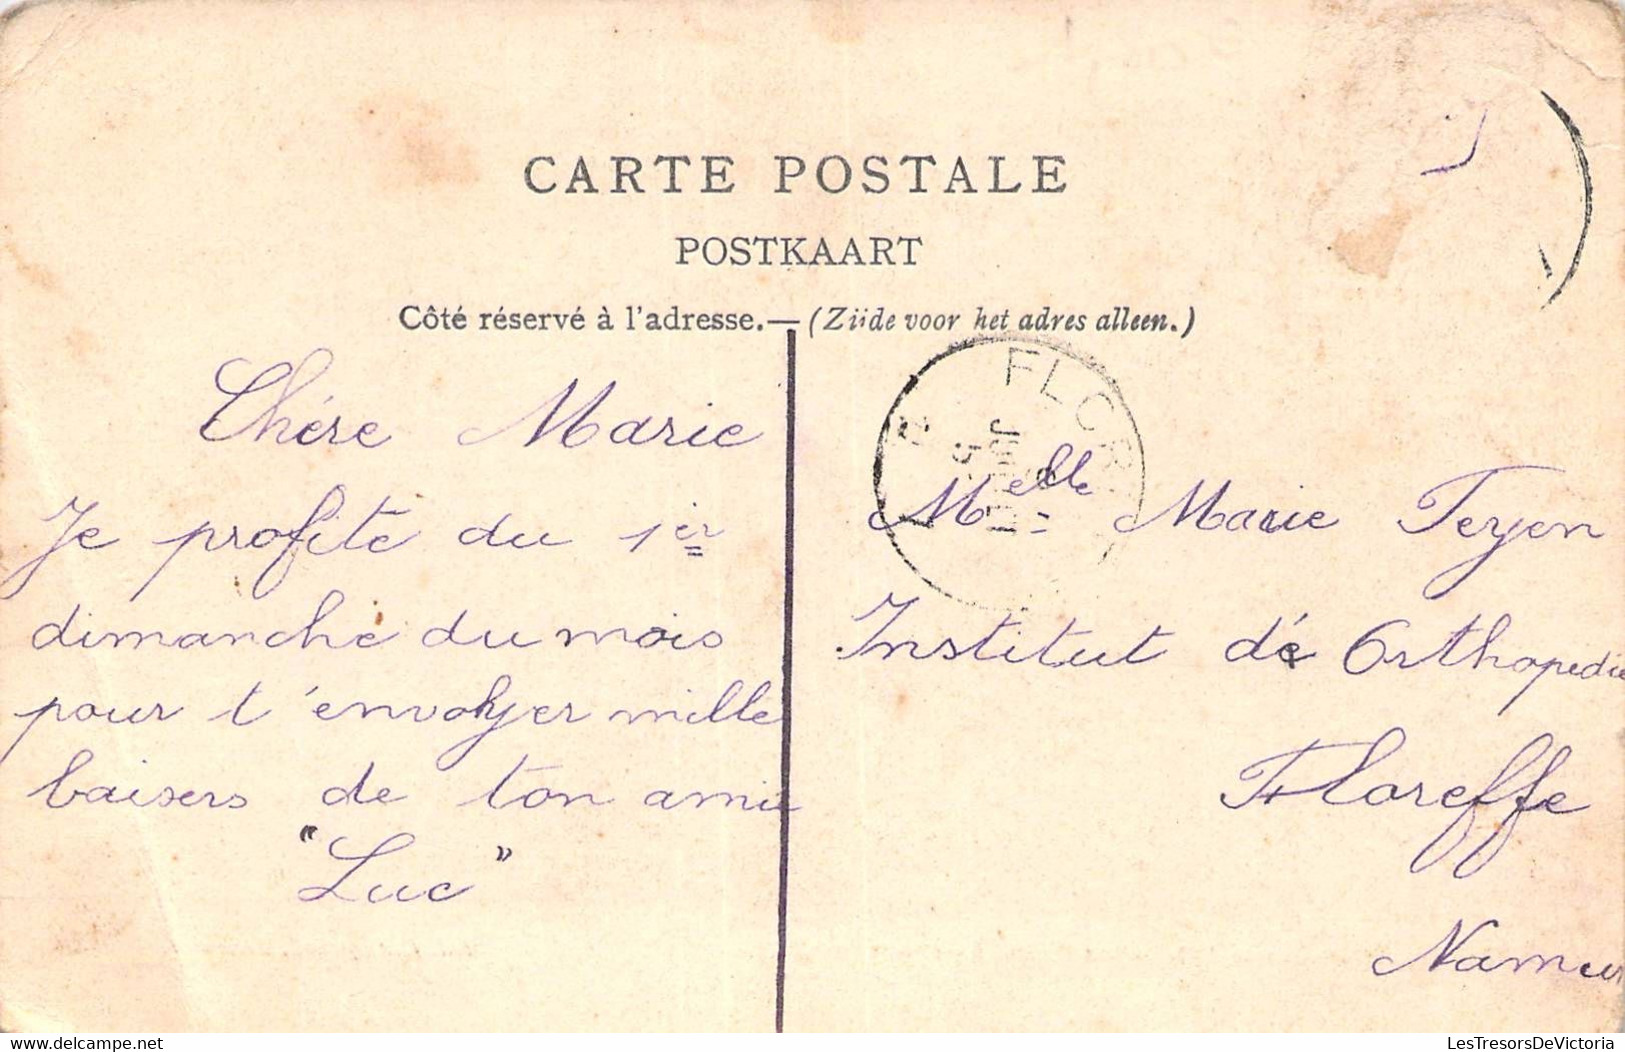 CARTE POSTALE
POSTKAART
Côté réservé à l'adresse.— (Zijde voor het adres alleen.)
Chére Marie
Je profite du 1er
dimanche du mois
pour t'envoyer mille
baisers de ton amie
"Luc"
FLOR
Melle Marie Teyen
Institut dé Orthopedie
Floreffe
Namur
www.delcampe.net
LesTresorsDeVictoria